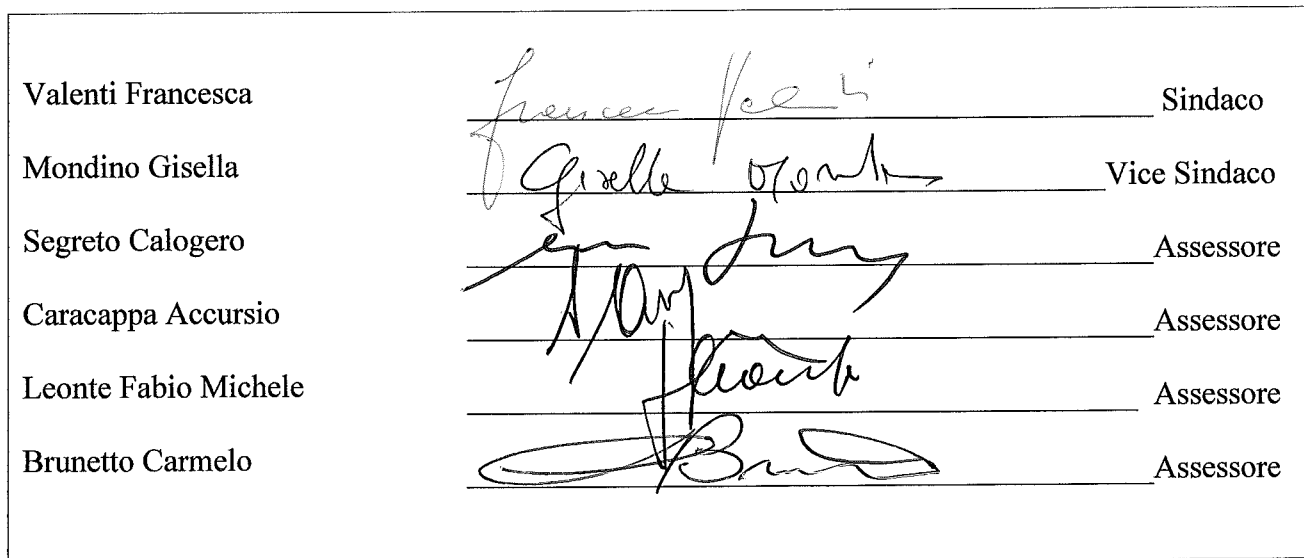 Valenti Francesca Francesca Valenti Sindaco
Mondino Gisella Gisella Vice Sindaco
Segreto Calogero Assessore
Caracappa Accursio Assessore
Leonte Fabio Michele Leonte Assessore
Brunetto Carmelo Assessore